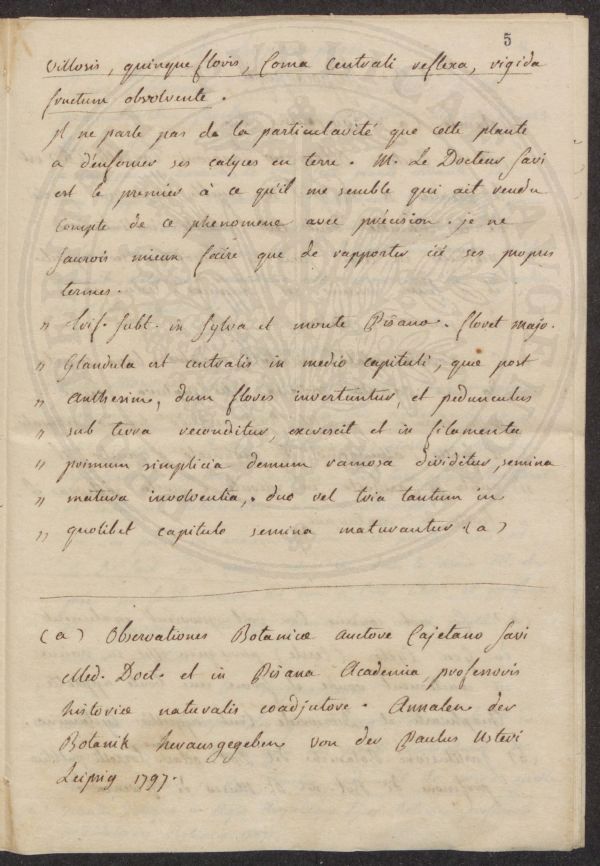 5
villosis, quinque floris, Coma Centrali reflexa, rigida
fructum obvolvente.
Il ne parle pas de la particularité que cette plante
a d'enfoncer ses calyces en terre. M. Le Docteur Savi
est le premier à ce qu'il me semble qui ait rendu
Compte de ce phenomene avec précision. je ne
saurois mieux faire que de rapporter ici ses propres
termes.
" Trif. Subt. in Sylva et monte Pisano. floret majo.
" Glandula est centralis in medio capituli, quæ post
" anthesim, dum flores invertuntur, et pedunculus
" sub terra reconditur, excrescit et in filamenta
" primum simplicia demum ramosa dividitur, semina
" matura involventia, duo vel tria tantum in
" quolibet capitulo semina maturantur. (a)
(a) Observationes Botanicæ auctore Cajetano Savi
Med. Doct. et in Pisana Academia, professoris
historiæ naturalis coadjutore. Annalen der
Botanik herausgegeben von der Paulus Usteri
Leipzig 1797.